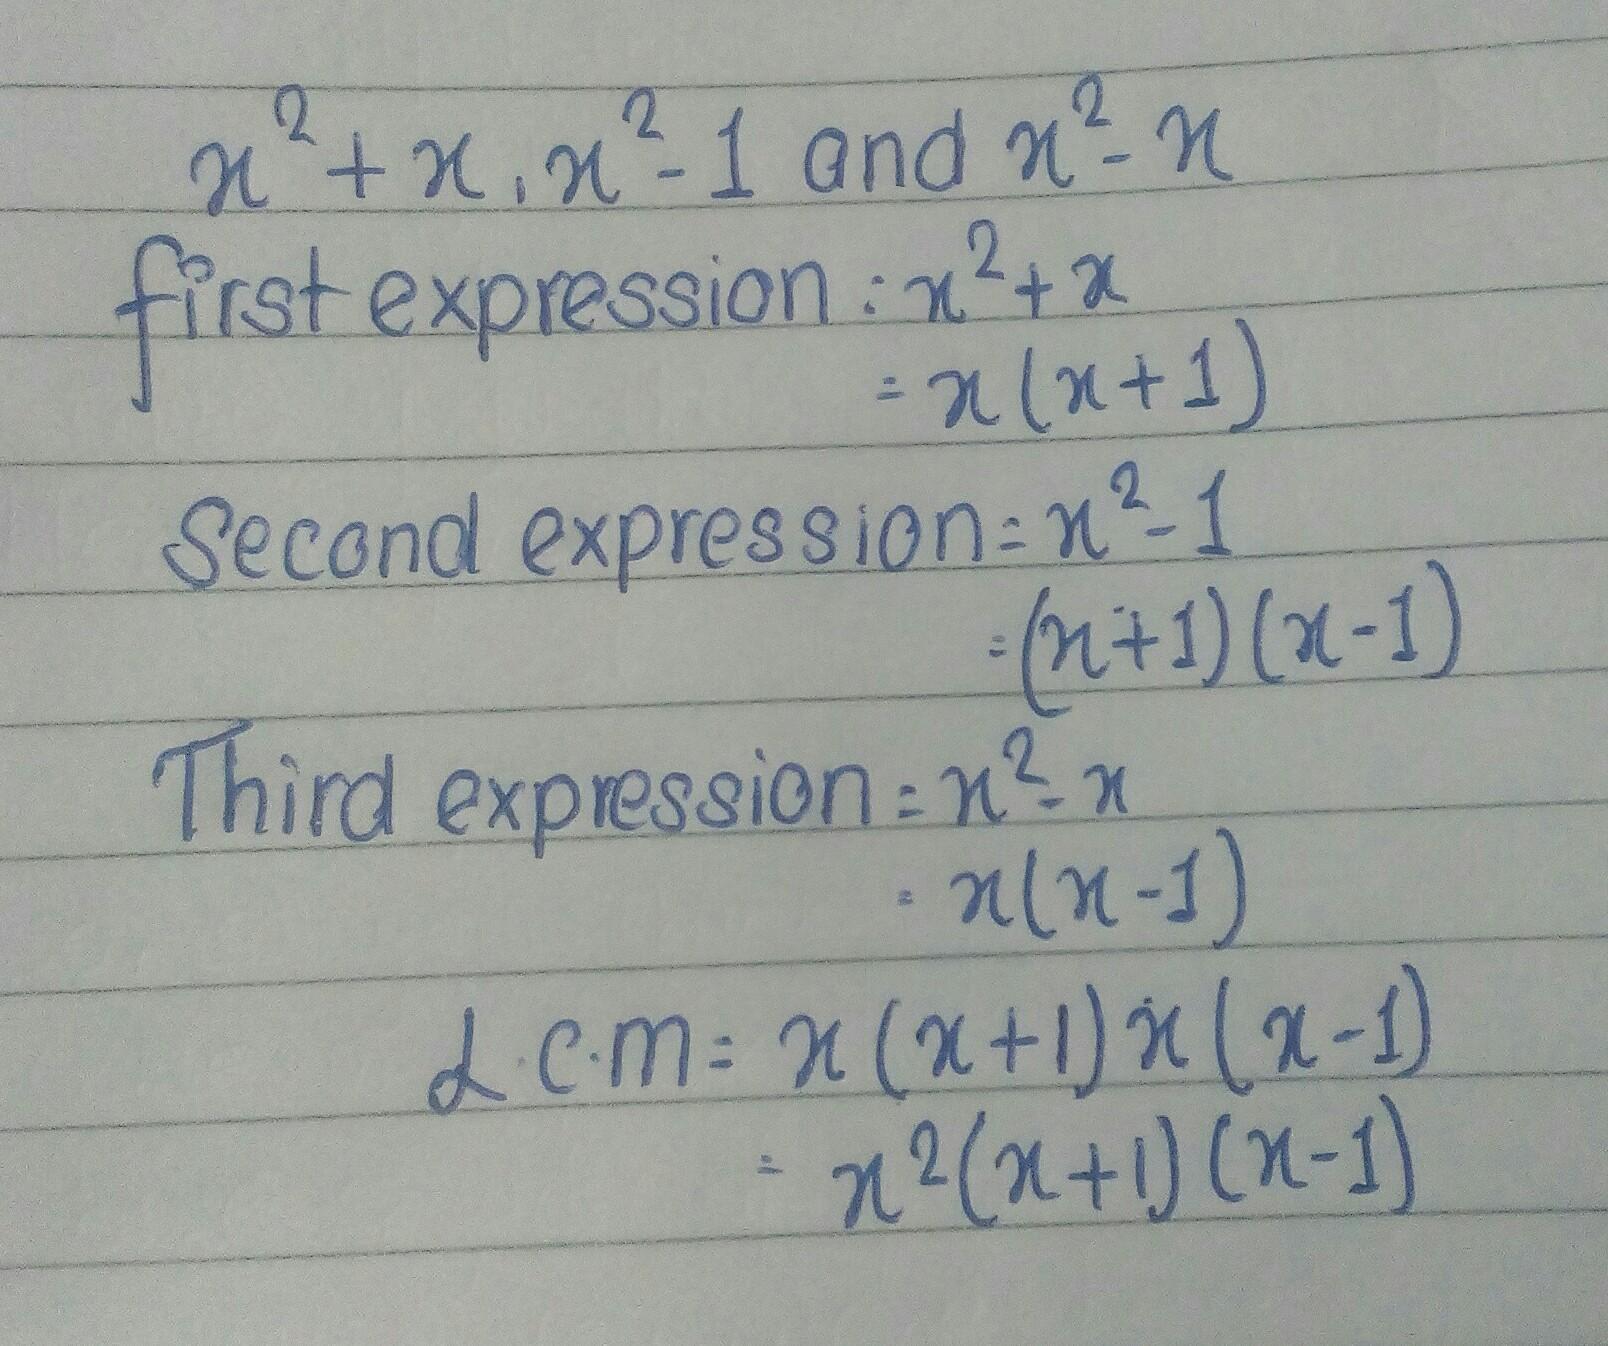 x²+x, x²-1 and x²-x
first expression: x²+x
= x(x+1)
Second expression= x²-1
=(x+1)(x-1)
Third expression= x²-x
= x(x-1)
L.C.M= x(x+1)x(x-1)
= x²(x+1)(x-1)